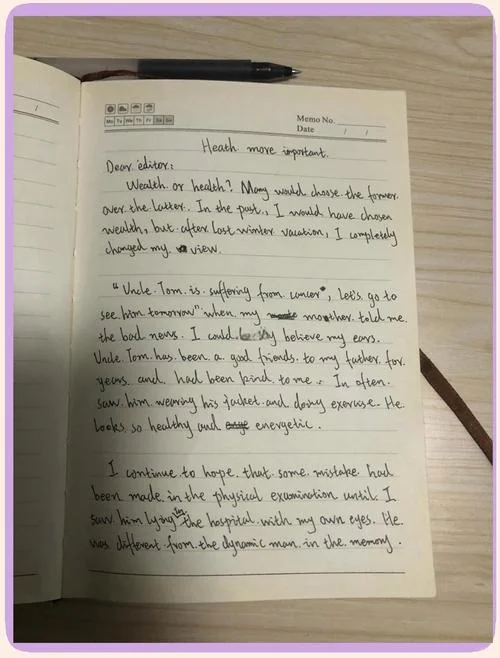 Mo Tu We Th Fr Sa Su
Memo No.
Date / /
Heath more important.
Dear editor:
Wealth or health? Many would choose the former
over the latter. In the past, I would have chosen
wealth, but after last winter vacation, I completely
changed my view.
"Uncle Tom is suffering from cancer", let's go to
see him tomorrow" when my mother told me
the bad news. I could believe my ears.
Uncle Tom has been a good friends to my father for
years and had been kind to me. In often
saw him wearing his jacket and doing exercise. He
looks so healthy and energetic.
I continue to hope that some mistake had
been made in the physical examination until I
saw him lying in the hospital with my own eyes. He
was different from the dynamic man in the memory.